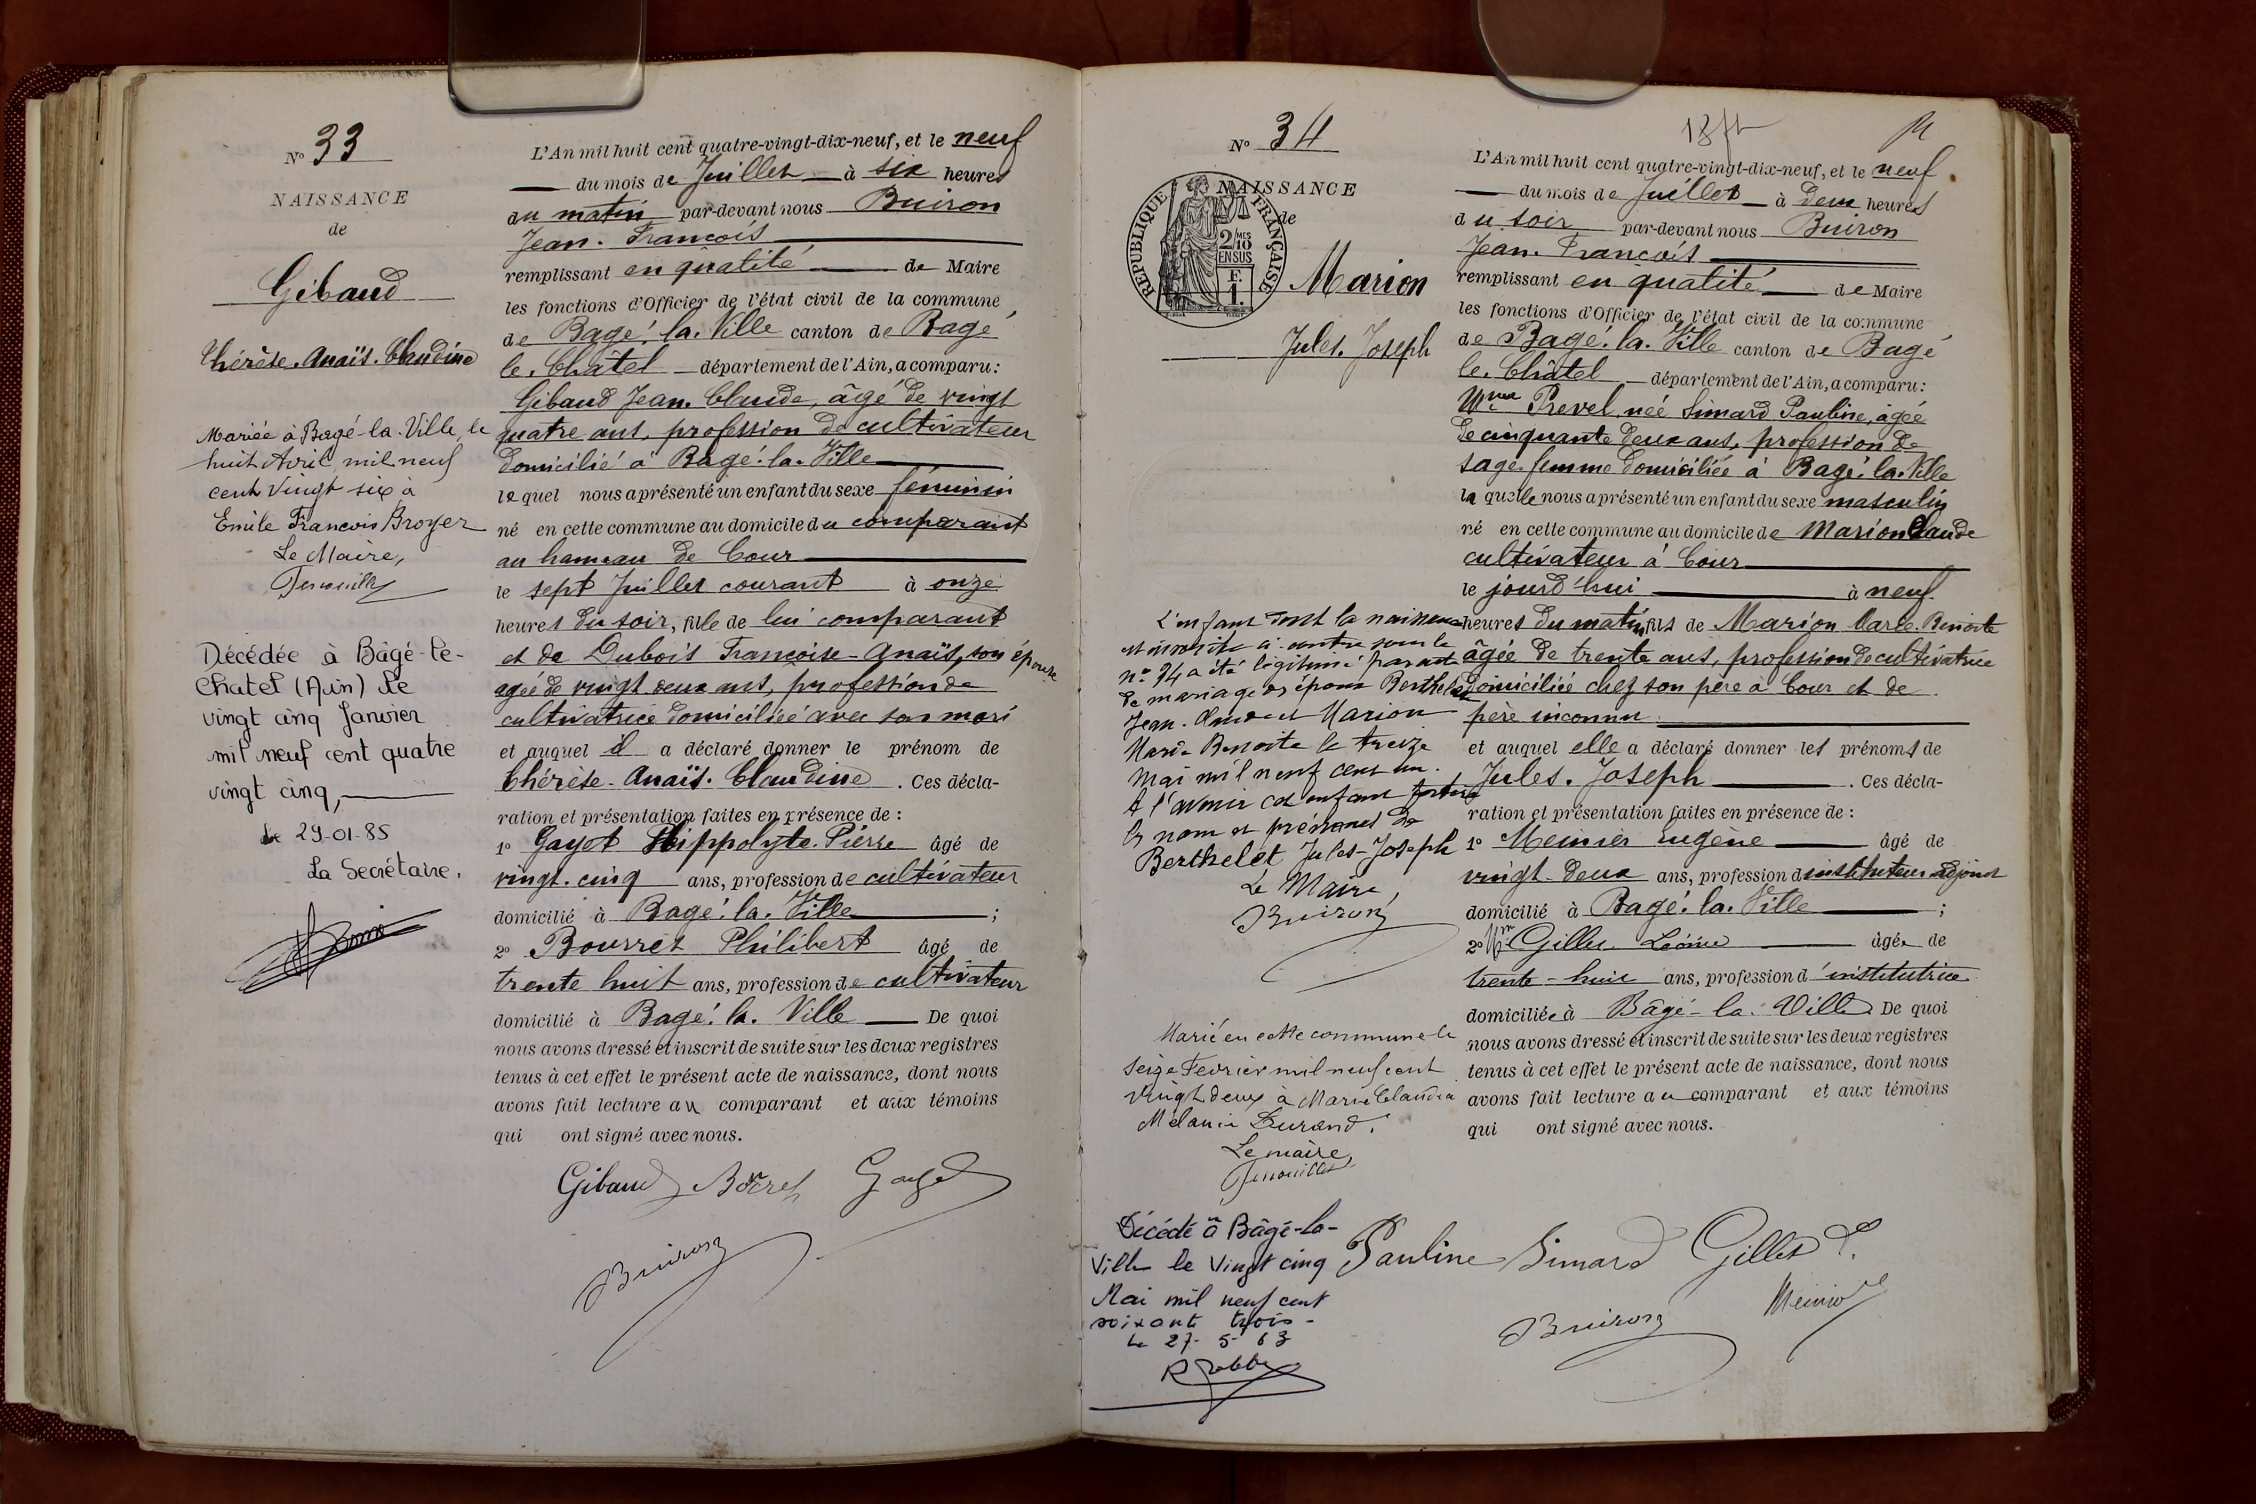 Nº 33
NAISSANCE
de
Gibaud
Thérèse. Anaïs. Claudine
Mariée à Bagé-la-Ville, le
huit Avril mil neuf
cent vingt six à
Emile François Broyer
Le Maire,
Décédée à Bâgé-le-
Chatel (Ain) le
vingt cinq Janvier
mil neuf cent quatre
vingt cinq,
Le 29-01-85
La Secrétaire,
L'An mil huit cent quatre-vingt-dix-neuf, et le neuf
du mois de Juillet à six heures
du matin par-devant nous Buiron
Jean. François
remplissant en qualité de Maire
les fonctions d'Officier de l'état civil de la commune
de Bagé. la. Ville canton de Bagé
le. Châtel département de l'Ain, a comparu:
Gibaud Jean. Claude, âgé de vingt
quatre ans, profession de cultivateur
domicilié à Bagé. la. Ville
lequel nous a présenté un enfant du sexe féminin
né en cette commune au domicile du comparant
au hameau de Cour
le sept Juillet courant à onze
heures du soir, fille de lui comparant
et de Dubois Françoise-Anaïs, son épouse
agée de vingt deux ans, profession de
cultivatrice domiciliée avec son mari
et auquel il a déclaré donner le prénom de
Thérèse. Anaïs. Claudine . Ces décla-
ration et présentation faites en présence de :
1º Gayet Hippolyte. Pierre âgé de
vingt. cinq ans, profession de cultivateur
domicilié à Bagé. la. Ville ;
2º Bourret Philibert âgé de
trente huit ans, profession de cultivateur
domicilié à Bagé. la. Ville De quoi
nous avons dressé et inscrit de suite sur les deux registres
tenus à cet effet le présent acte de naissance, dont nous
avons fait lecture au comparant et aux témoins
qui ont signé avec nous.
Gibaud Bourret Gayet
Buiron
Nº 34
NAISSANCE
de
RÉPUBLIQUE FRANÇAISE
2/10 MES
EN SUS
F.
1.
Marion
Jules. Joseph
L'enfant dont la naissance
est inscrite ci-contre sous le
nº 34 a été légitimé par acte
de mariage des époux Berthelet
Jean-Claude et Marion
Marie Benoite le treize
mai mil neuf cent un.
A l'avenir cet enfant portera
les nom et prénoms de
Berthelet Jules-Joseph
Le Maire,
Buiron
Marié en cette commune le
seize Fevrier mil neuf cent
vingt deux à Marie Claudia
Mélanie Durand.
Le maire,
Décédé à Bâgé-la-
Ville le Vingt cinq
Mai mil neuf cent
soixante trois -
Le 27- 5- 63
L'An mil huit cent quatre-vingt-dix-neuf, et le neuf
du mois de Juillet à deux heures
du soir par-devant nous Buiron
Jean. François
remplissant en qualité de Maire
les fonctions d'Officier de l'état civil de la commune
de Bagé. la. Ville canton de Bagé
le. Châtel département de l'Ain, a comparu:
Mme Prevel née Simard Pauline, agée
de cinquante deux ans, profession de
sage-femme domiciliée à Bagé. la. Ville
laquelle nous a présenté un enfant du sexe masculin
né en cette commune au domicile de Marion Claude
cultivateur à Cour
le jourd'hui à neuf
heures du matin, fils de Marion Marie. Benoite
âgée de trente ans, profession de cultivatrice
domiciliée chez son père à Cour et de
père inconnu
et auquel elle a déclaré donner les prénoms de
Jules. Joseph . Ces décla-
ration et présentation faites en présence de :
1º Meinier Eugène âgé de
vingt-deux ans, profession d'instituteur adjoint
domicilié à Bagé. la. Ville ;
2º Gillet Léonie âgée de
trente-huit ans, profession d'institutrice
domiciliée à Bâgé-la-Ville De quoi
nous avons dressé et inscrit de suite sur les deux registres
tenus à cet effet le présent acte de naissance, dont nous
avons fait lecture au comparant et aux témoins
qui ont signé avec nous.
Pauline Simard Gillet L.
Buiron Meinier